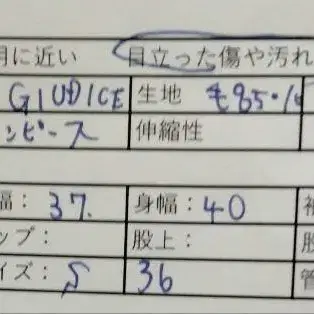 用に近い 目立った傷や汚れ
GIUDICE 生地 毛85・
ンピース 伸縮性
幅： 37. 身幅：40
ップ： 股上：
イズ： S 36